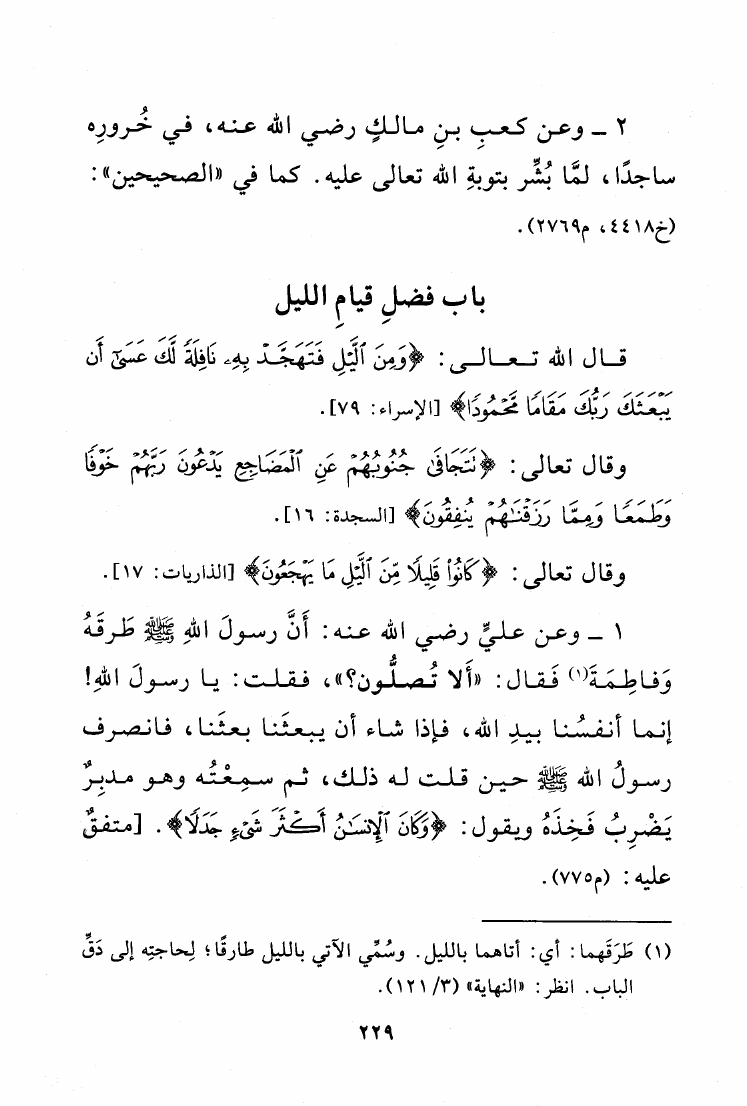 ٢ ــ وعن كعبِ بنِ مالكٍ رضي الله عنه، في خُرورِه
ساجدًا، لمَّا بُشِّر بتوبةِ الله تعالى عليه. كما في «الصحيحين»:
(خ٤٤١٨، م٢٧٦٩).
باب فضلِ قيامِ الليل
قال الله تعالى: ﴿وَمِنَ ٱلَّيْلِ فَتَهَجَّدْ بِهِۦ نَافِلَةً لَّكَ عَسَىٰٓ أَن
يَبْعَثَكَ رَبُّكَ مَقَامًا مَّحْمُودًا﴾ [الإسراء: ٧٩].
وقال تعالى: ﴿نَتَجَافَىٰ جُنُوبُهُمْ عَنِ ٱلْمَضَاجِعِ يَدْعُونَ رَبَّهُمْ خَوْفًا
وَطَمَعًا وَمِمَّا رَزَقْنَٰهُمْ يُنفِقُونَ﴾ [السجدة: ١٦].
وقال تعالى: ﴿كَانُوا۟ قَلِيلًا مِّنَ ٱلَّيْلِ مَا يَهْجَعُونَ﴾ [الذاريات: ١٧].
١ ــ وعن عليٍّ رضي الله عنه: أَنَّ رسولَ اللهِ ﷺ طَرقَهُ
وَفاطِمَةَ(١) فَقال: «أَلا تُصلُّون؟»، فقلت: يا رسولَ اللهِ!
إنما أنفسُنا بيدِ الله، فإذا شاء أن يبعثَنا بعثَنا، فانصرف
رسولُ الله ﷺ حين قلت له ذلك، ثم سمِعْتُه وهو مدبِرٌ
يَضْرِبُ فَخِذَهُ ويقول: ﴿وَكَانَ ٱلْإِنسَٰنُ أَكْثَرَ شَىْءٍ جَدَلًا﴾. [متفقٌ
عليه: (م٧٧٥).
(١) طَرَقَهما: أي: أتاهما بالليل. وسُمِّي الآتي بالليل طارقًا؛ لِحاجتِه إلى دَقِّ
الباب. انظر: «النهاية» (٣/ ١٢١).
٢٢٩